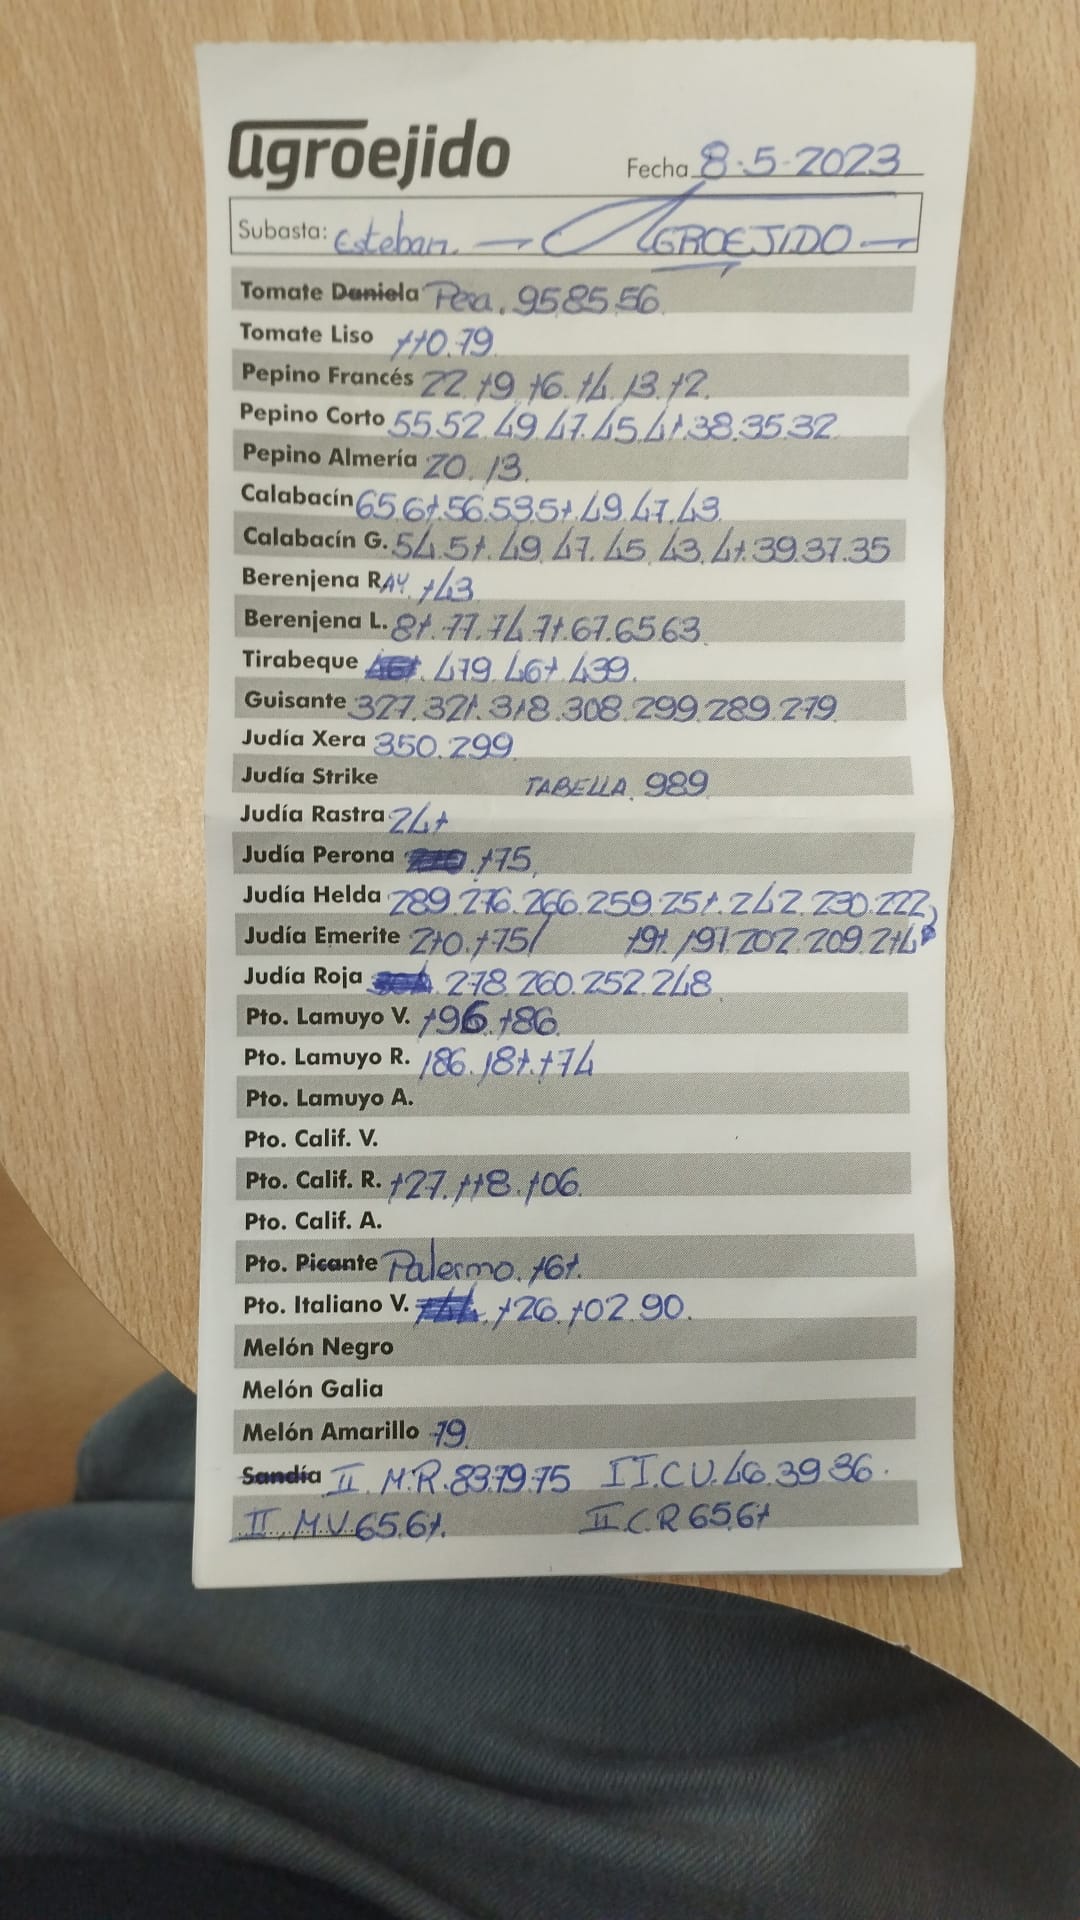 agroejido
Fecha 8-5-2023
Subasta: Esteban. — AGROEJIDO —
Tomate Daniela Pera. 95.85.56.
Tomate Liso 110.79.
Pepino Francés 22.19.16.14.13.12.
Pepino Corto 55.52.49.47.45.41.38.35.32.
Pepino Almería 20.13.
Calabacín 65.61.56.53.51.49.47.43.
Calabacín G. 54.51.49.47.45.43.41.39.37.35
Berenjena RAY. 143
Berenjena L. 81.77.74.71.67.65.63.
Tirabeque 479.461.439.
Guisante 327.321.318.308.299.289.279.
Judía Xera 350.299.
Judía Strike TABELLA. 989.
Judía Rastra 241
Judía Perona .175.
Judía Helda 289.276.266.259.251.242.230.222,
Judía Emerite 210.175/ 191.197.202.209.214
Judía Roja .278.260.252.248
Pto. Lamuyo V. 196.186.
Pto. Lamuyo R. 186.181.174
Pto. Lamuyo A.
Pto. Calif. V.
Pto. Calif. R. 127.118.106.
Pto. Calif. A.
Pto. Picante Palermo. 161.
Pto. Italiano V. .126.102.90.
Melón Negro
Melón Galia
Melón Amarillo 79.
Sandía II. M.R.83.79.75 II.C.V.46.39.36.
II. M.V.65.61. II.C.R 65.61